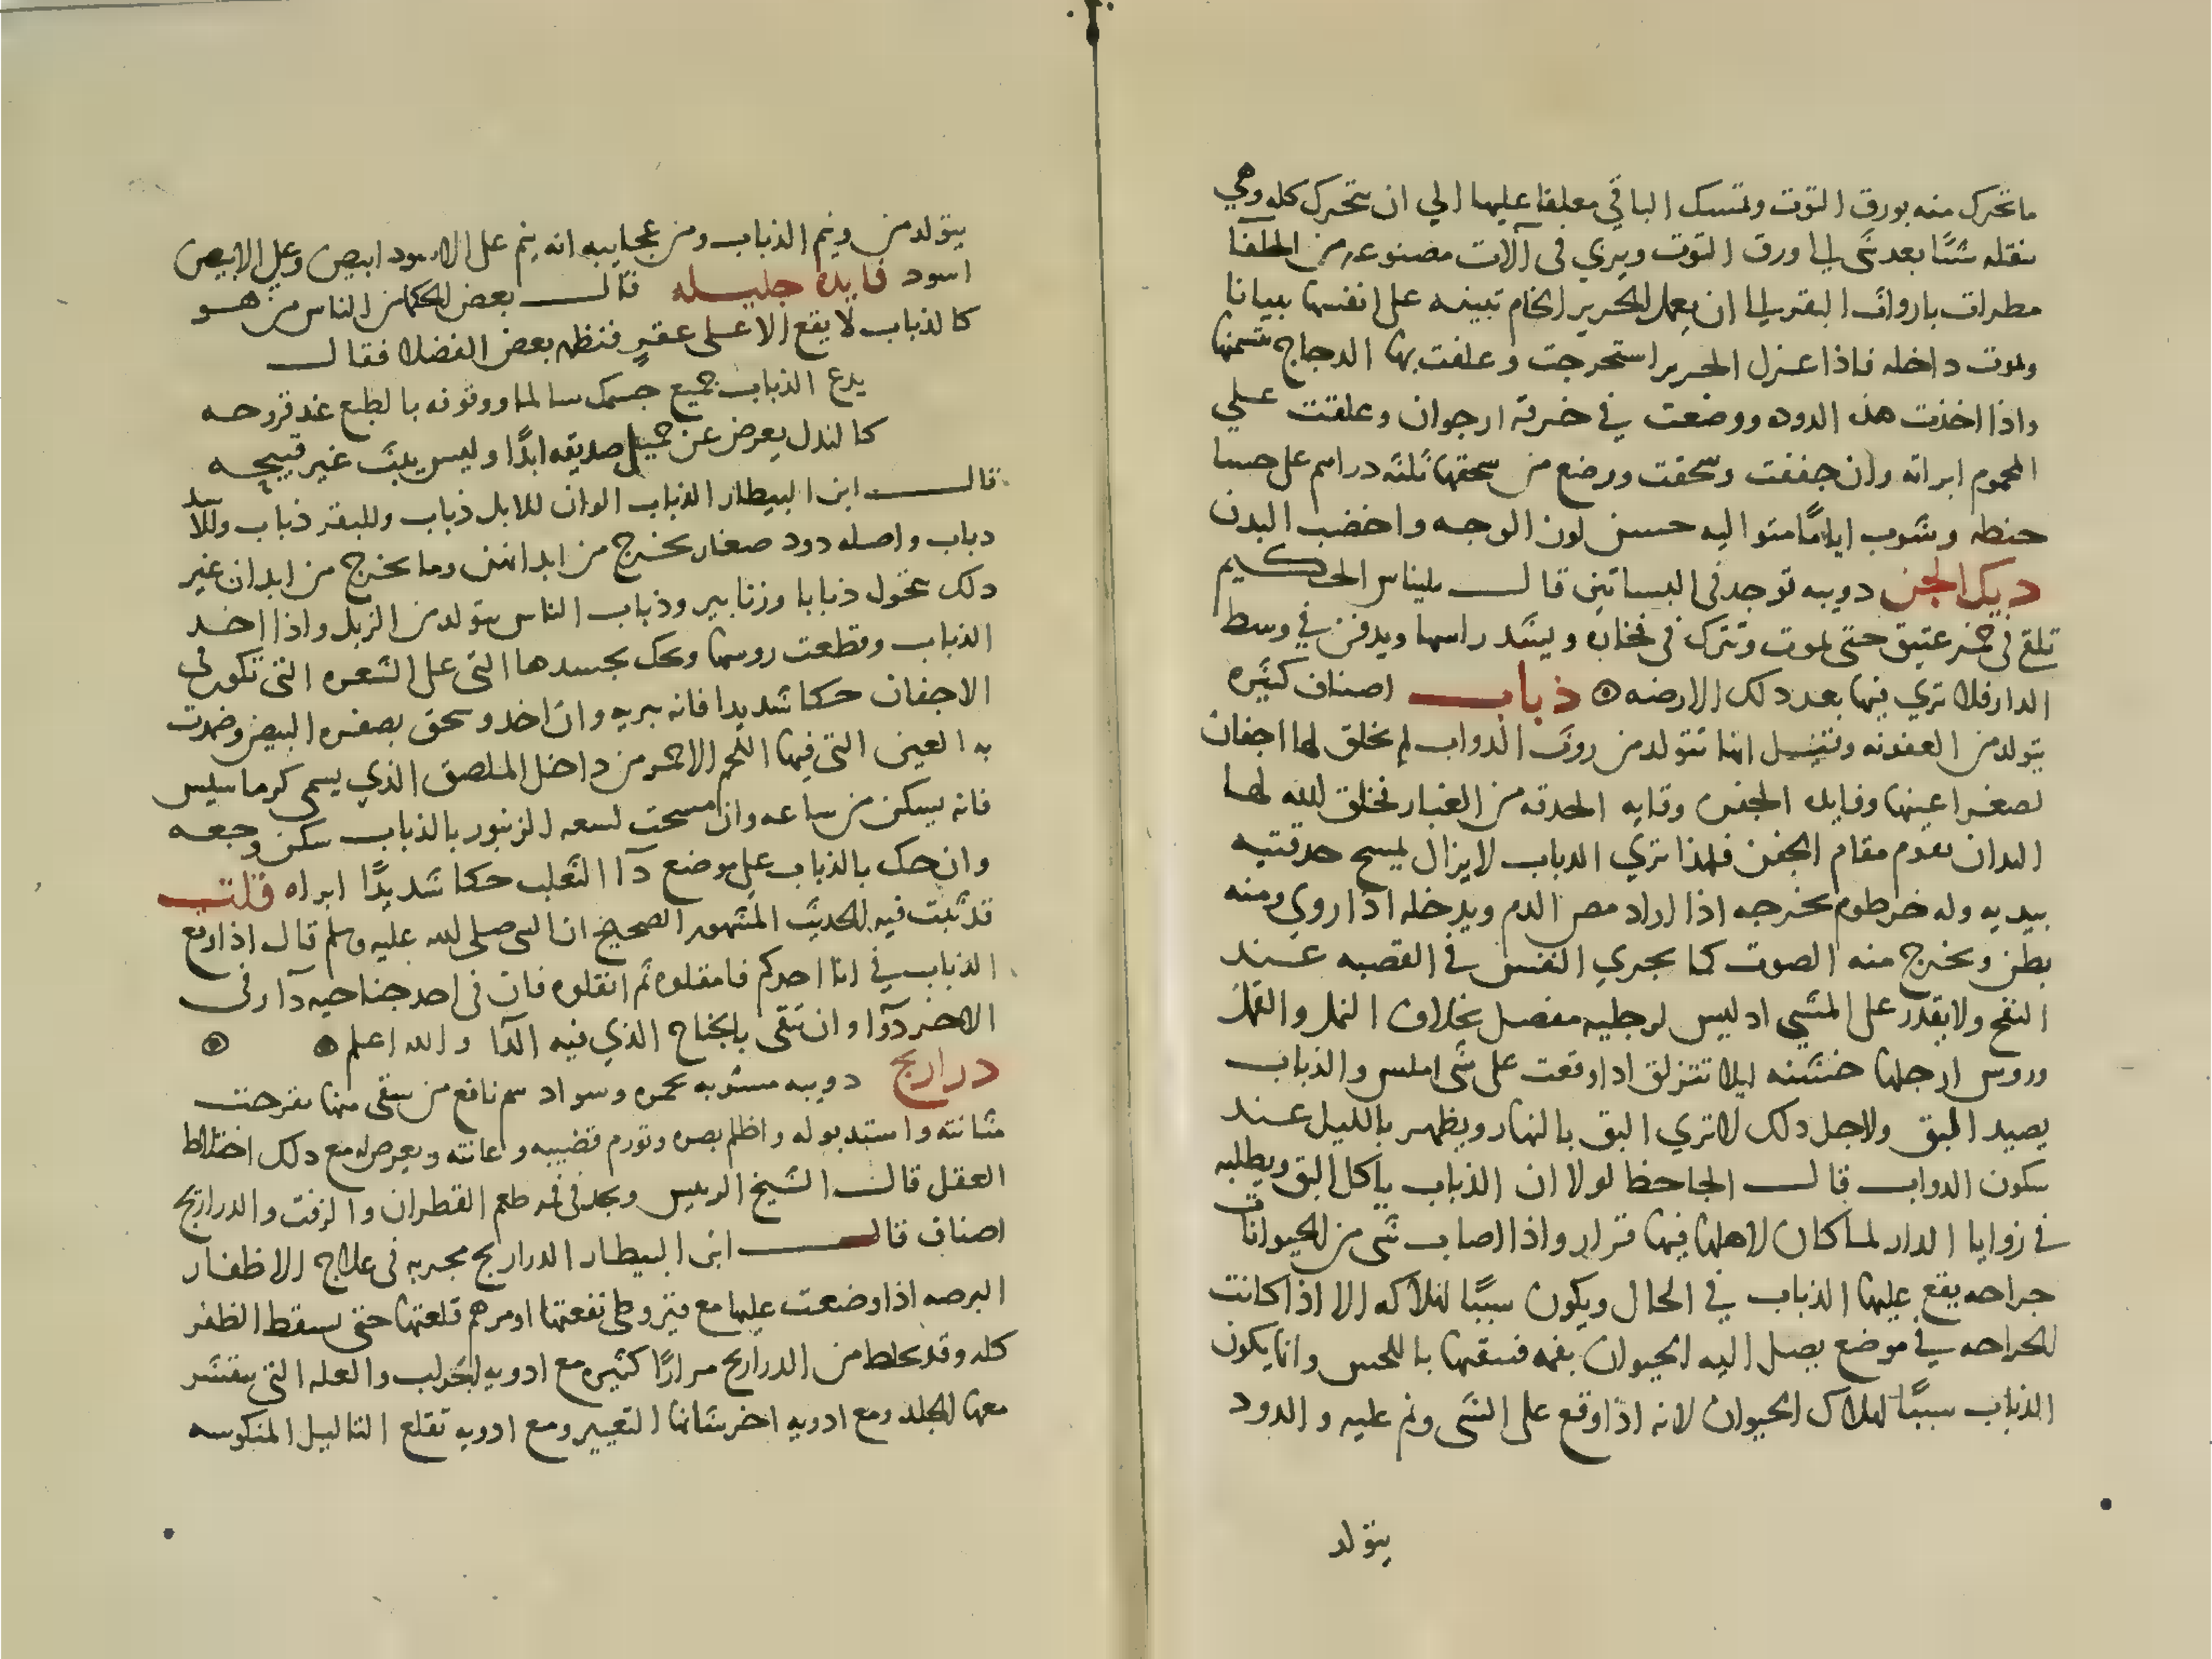 ما تحرك منه بورق التوت وتمسك الباقي معلقا عليها الي ان يتحرك كله وهي
تنقله شيئًا بعد شي الي ورق التوت ويربي في آلات مصنوعه من الحلفا
مطرات باروات البقر الي ان يعمل الحرير الخام تبينه على انفسها بيبانا
ويموت داخله فاذا عزل الحرير استخرجت وعلفت بها الدجاج تسمنها
واذا اخذت هذ الدوده ووضعت في خرقه ارجوان وعلقت علي
المحموم ابراته وان جففت وسحقت ووضع من سحقها ثلثه دراهم على حسا
حنطه وشرب ايامًا متواليه حسن لون الوجه واخضب البدن
ديك الجن دويبه توجد في البساتين قال بليناس الحكيم
تلقى في خمر عتيق حتى تموت وتترك في فخاره ويشد راسها ويدفن في وسط
الدار فلا تري فيها بعد دلك الارضه ذباب اصناف كثيره
يتولد من العفونه وقيل انها تتولد من روث الدواب لم يخلق لها اجفان
لصغر اعينها وفايده الجفن وقايه الحدقه من الغبار فخلق الله لها
اليدان تقوم مقام الجفن فلهذا تري الدباب لا يزال يمسح حدقتيه
بيديه وله خرطوم يخرجه اذا اراد مص الدم ويدخله اذا روي ومنه
بطن ويخرج منه الصوت كما يجري النفس في القصبه عند
النفخ ولا يقدر على المشي اد ليس لرجليه مفصل بخلاف النمل والقمل
وروس ارجلها خشنه ليلا تنزلق ادا وقعت على شي املس والذباب
يصيد البق ولاجل دلك لا تري البق بالنهار ويظهر بالليل عند
سكون الدواب قال الجاحظ لولا ان الذباب ياكل البق ويطلبه
في زوايا الدار لما كان لاهلها فيها قرار واذا اصاب شي من الحيوانات
جراحه يقع عليها الذباب في الحال ويكون سببًا لهلاكه الا اذا كانت
الجراحه في موضع يصل اليه الحيوان بفمه فسقها باللحس وانما يكون
الذباب سببًا لهلاك الحيوان لانه اذا وقع على الشي ونم عليه والدود
يتولد
يتولد من ونيم الذباب ومن عجايبه انه ينم على الاسود ابيض وعلي الابيض
اسود فايده جليله قال بعض الحكما من الناس من هو
كالذباب لا يقع الا على عقير فنظمه بعض الفضلا فقال
يدع الذباب جميع جسمك سالما ووقوفه بالطبع عند قروحه
كالندل يعرض عن جميل صديقه ابدًا وليس يبث غير قبيحه
قال ابن البيطار الذباب الوان للابل ذباب وللبقر ذباب وللاسد
دباب واصله دود صغار يخرج من ابدانهن وما يخرج من ابدان غير
دلك تتحول ذبابا وزنابير وذباب الناس يتولد من الزبل واذا اخد
الذباب وقطعت روسها وحك بجسدها التي على الشعره التي تكون في
الاجفان حكا شديدا فانه يبريه وان اخد وسحق بصفره البيض وضمدت
به العين التي فيها اللحم الاحمر من داخل الملصق الذي يسمى كرماسيس
فانه يسكن من ساعه وان مسحت لسعه الزنبور بالذباب سكن وجعه
وان حك بالذباب على موضع دآ الثعلب حكا شديدًا ابراه قلت
قد ثبت فيه الحديث المشهور الصحيح ان النبي صلى الله عليه وسلم قال اذا وقع
الذباب في انا احدكم فامقلوه ثم انقلوه فان في احد جناحيه دآ وفي
الاخر دوآ وان تتقى بالجناح الذي فيه الدآ والله اعلم
دراريح دويبه مشوبه بحمره وسواد سم نافع من سقى منها تقرحت
مثانته واستد بوله واظلم بصره وتورم قضيبه وعانته ويعرض له مع دلك اختلاط
العقل قال الشيخ الرييس ويجد في فمه طعم القطران والزفت والدراريح
اصناف قال ابن البيطار الدراريح مجربه في علاج الاظفار
البرصه اذا وضعت عليها مع قيروطي نفعتها او مرهم قلعتها حتى يسقط الظفر
كله وقد يخلط من الدراريح مرارًا كثيره مع ادويه الجرب والعله التي يتقشر
معها الجلد ومع ادويه اخر شانها التعيير ومع ادويه تقلع الثاليل المنكوسه